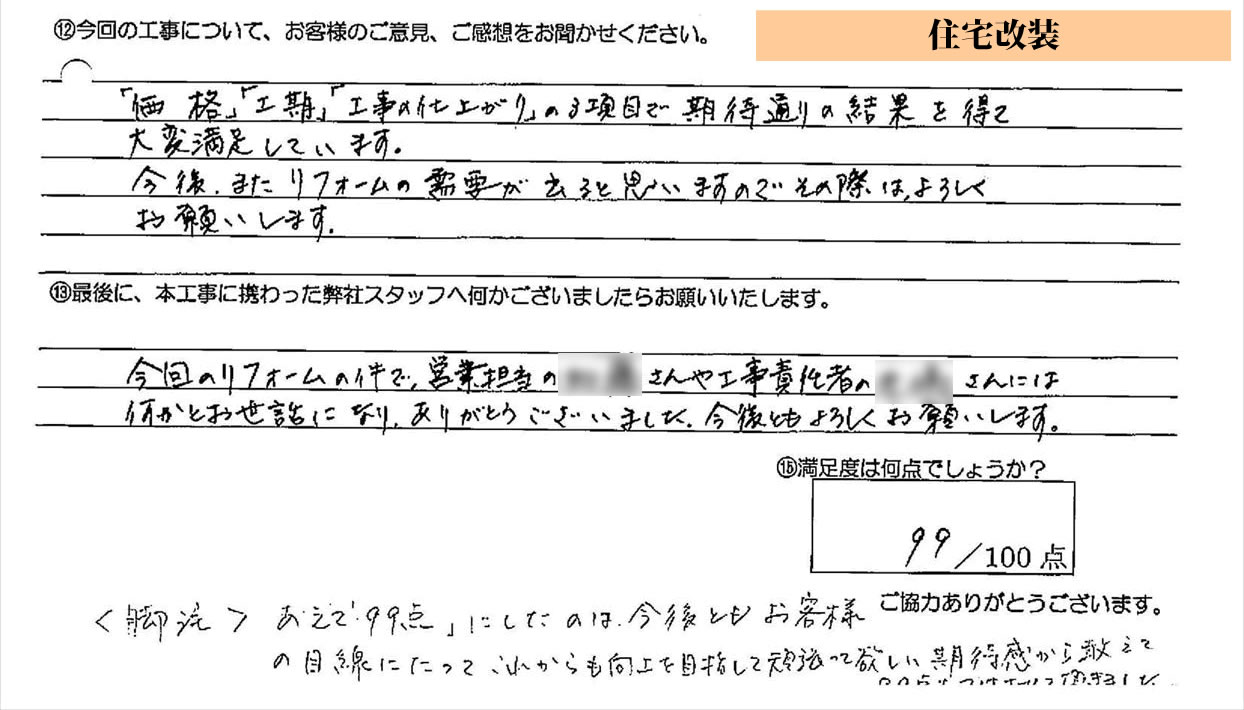 ⑫今回の工事について、お客様のご意見、ご感想をお聞かせください。
住宅改装
「価格」「工期」「工事の仕上がり」の3項目で期待通りの結果を得て
大変満足しています。
今後、また リフォームの需要が出ると思いますのでその際は、よろしく
お願いします。
⑬最後に、本工事に携わった弊社スタッフへ何かございましたらお願いいたします。
今回のリフォームの件で、営業担当の さんや工事責任者の さんには
何かとお世話になり、ありがとうございました。今後ともよろしくお願いします。
⑮満足度は何点でしょうか?
99/100点
ご協力ありがとうございます。
<脚注> あえて「99点」にしたのは、今後ともお客様
の目線にたって これからも向上を目指して頑張って欲しい期待感から敢えて